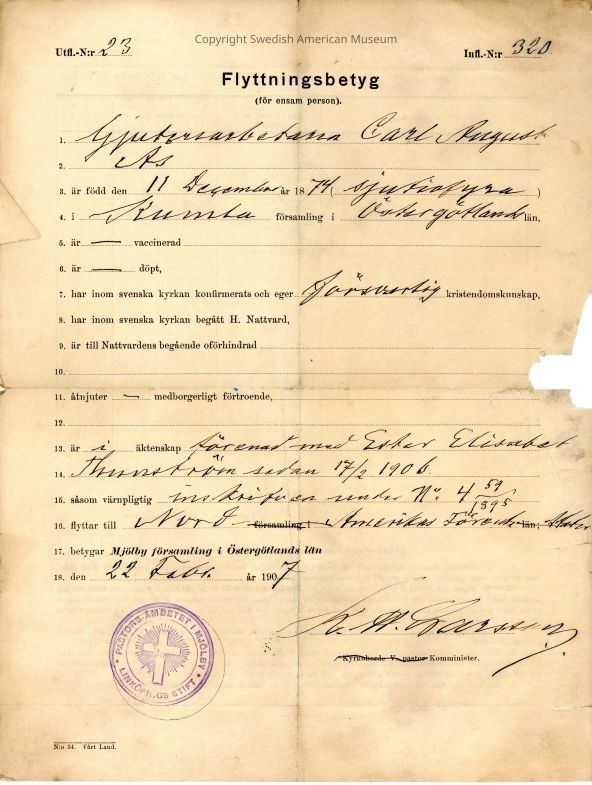 Copyright Swedish American Museum
Utfl.-N:r 23
Infl.-N:r 320
Flyttningsbetyg
(för ensam person).
1. Gjuteriarbetaren Carl August
2. As
3. är född den 11 December år 1874 (sjutiofyra)
4. i Kumla församling i Östergötlands län,
5. är — vaccinerad
6. är — döpt,
7. har inom svenska kyrkan konfirmerats och eger försvarlig kristendomskunskap,
8. har inom svenska kyrkan begått H. Nattvard,
9. är till Nattvardens begående oförhindrad
10.
11. åtnjuter — medborgerligt förtroende,
12.
13. är i äktenskap förenad med Ester Elisabet
14. Thunström sedan 17/2 1906.
15. såsom värnpligtig inskrifven under No. 4 59/1395
16. flyttar till Nord församling i Amerikas Förenta län; Stater
17. betygar Mjölby församling i Östergötlands län
18. den 22 Febr. år 1907
K. A. Larsson
Kyrkoherde V. pastor Komminister.
PASTORS-ÄMBETET I MJÖLBY
LINKÖPINGS STIFT
N:o 34. Vårt Land.